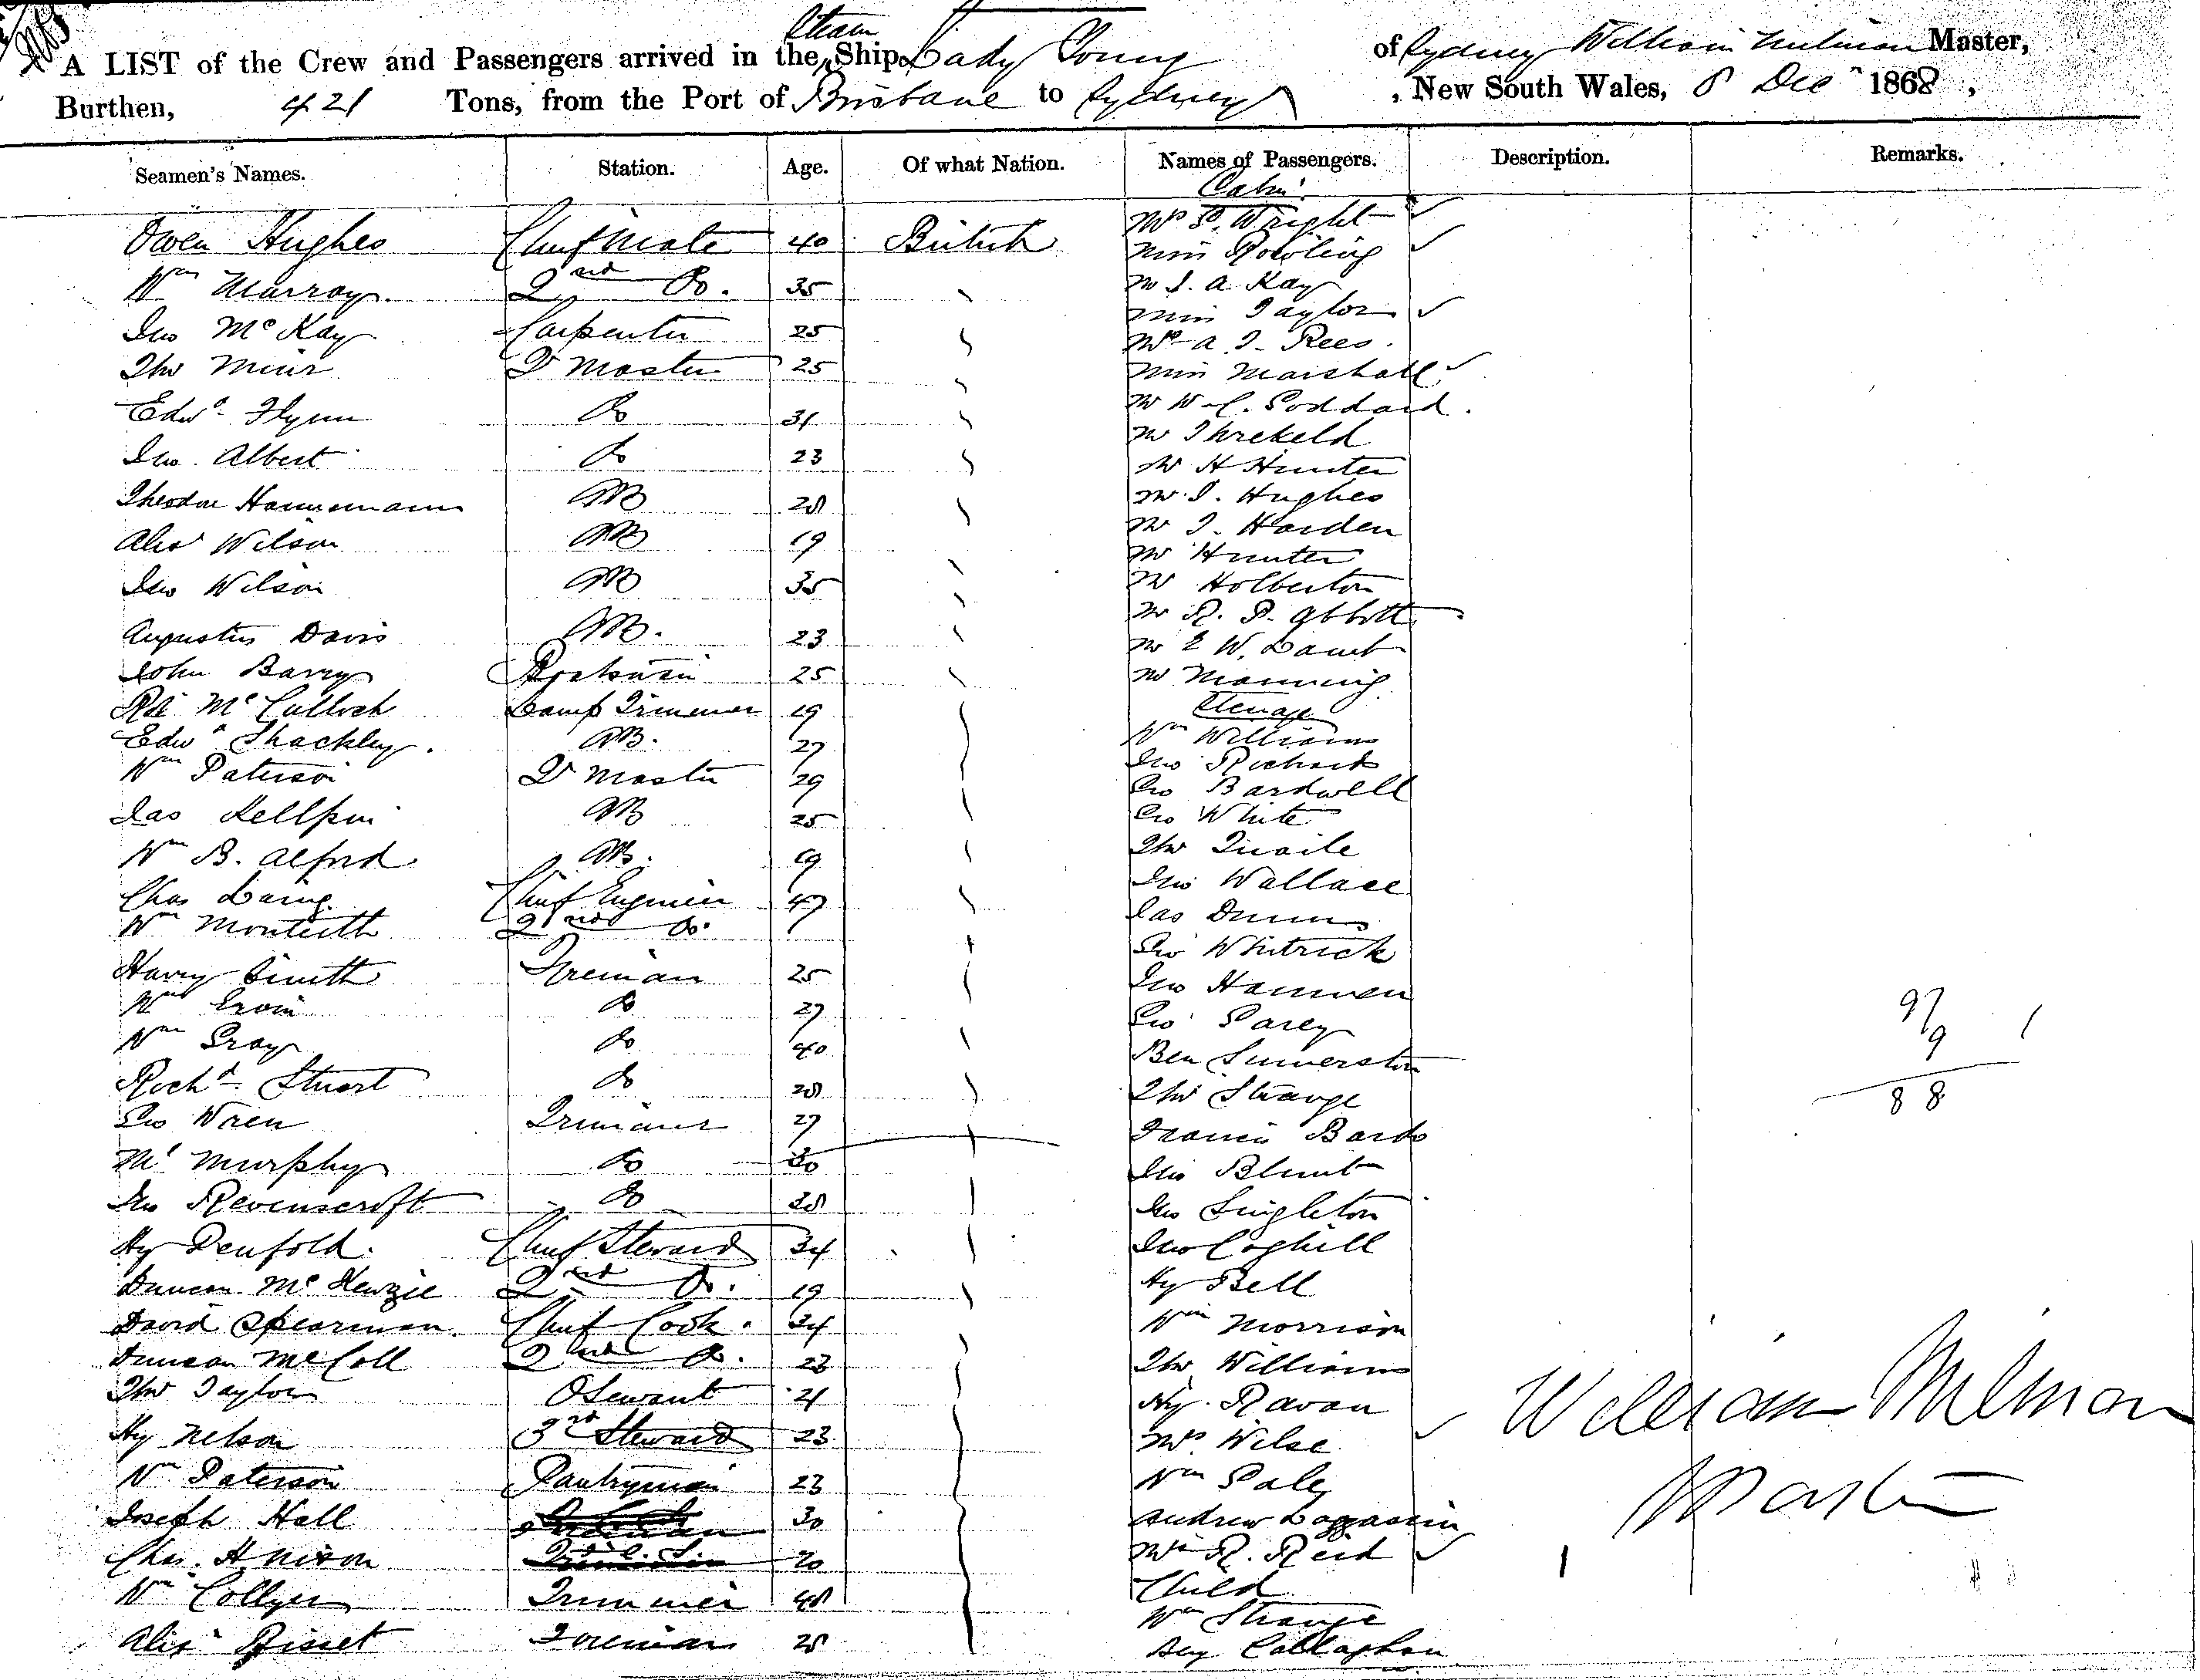 Steam
A LIST of the Crew and Passengers arrived in the Ship Lady Young of Sydney William Milman Master,
Burthen, 421 Tons, from the Port of Brisbane to Sydney, New South Wales, 8 Dec 1868,
Seamen's Names. Station. Age. Of what Nation. Names of Passengers. Description. Remarks.
Cabin
Owen Hughes Chief Mate 40 British
Wm Murray 2nd Do. 35
Jno McKay Carpenter 25
Thos Muir Qr Master 25
Edwd Flynn Do 31
Jno Albert Do 23
Theodore Hannemann AB 28
Alexr Wilson AB 19
Jno Wilson AB 35
Augustus Davis AB. 23
John Barry Boatswain 25
Rt McCulloch Lamp Trimmer 19
Edwd Shackley. AB. 27
Wm Paterson Qr Master 29
Jas AB 25
Wm B. Alford AB. 19
Chas Laing Chief Engineer 47
Wm Monteith 2nd Do.
Harry Smith Fireman 25
Wm Ervin Do 27
Wm Gray Do 40
Richd Stuart Do 28
Geo Wren Trimmer 27
Ml Murphy Do 30
Jno Revenscroft Do 28
Hy Penfold. Chief Steward 34
Duncan McKenzie 2nd Do. 19
David Spearman. Chief Cook. 34
Duncan McColl 2nd Do. 23
Thos Taylor 21
Hy Nelson 3rd Steward 23
Wm Paterson Pantryman 23
Joseph Hall 30
Chas. H Nixon 20
Wm Collyer Trimmer 48
Alexr Bisset Fireman 28
Mrs G. Wright
Miss Rowling
Mr J. A. Kay
Miss Taylor
Mr A. J. Rees.
Miss Marshall
Mr W. C. Goddard.
Mr Threkeld
Mr H Hunter
Mr. J. Hughes
Mr J. Harden
Mr Hunter
Mr Holberton
Mr R. P. Abbott
Mr E W. Lamb
Mr Manning
Steerage
Wm Williams
Jno Richards
Geo Bardwell
Geo White
Thos Quaile
Jno Wallace
Jas Dunn
Geo Whitrick
Jno Hammen
Geo Garey
Ben Sumerston
Thos Strange
Francis Bards
Jno Blunt
Jno Singleton
Jno Coghill
Hy Bell
Wm Morrison
Thos Williams
Hy. Ravan
Mrs. Wilse
Wm Galey
Andrew
Mrs R. Reid
Child
Wm Strange
Callaghan
97
9 1
88
William Milman
Master